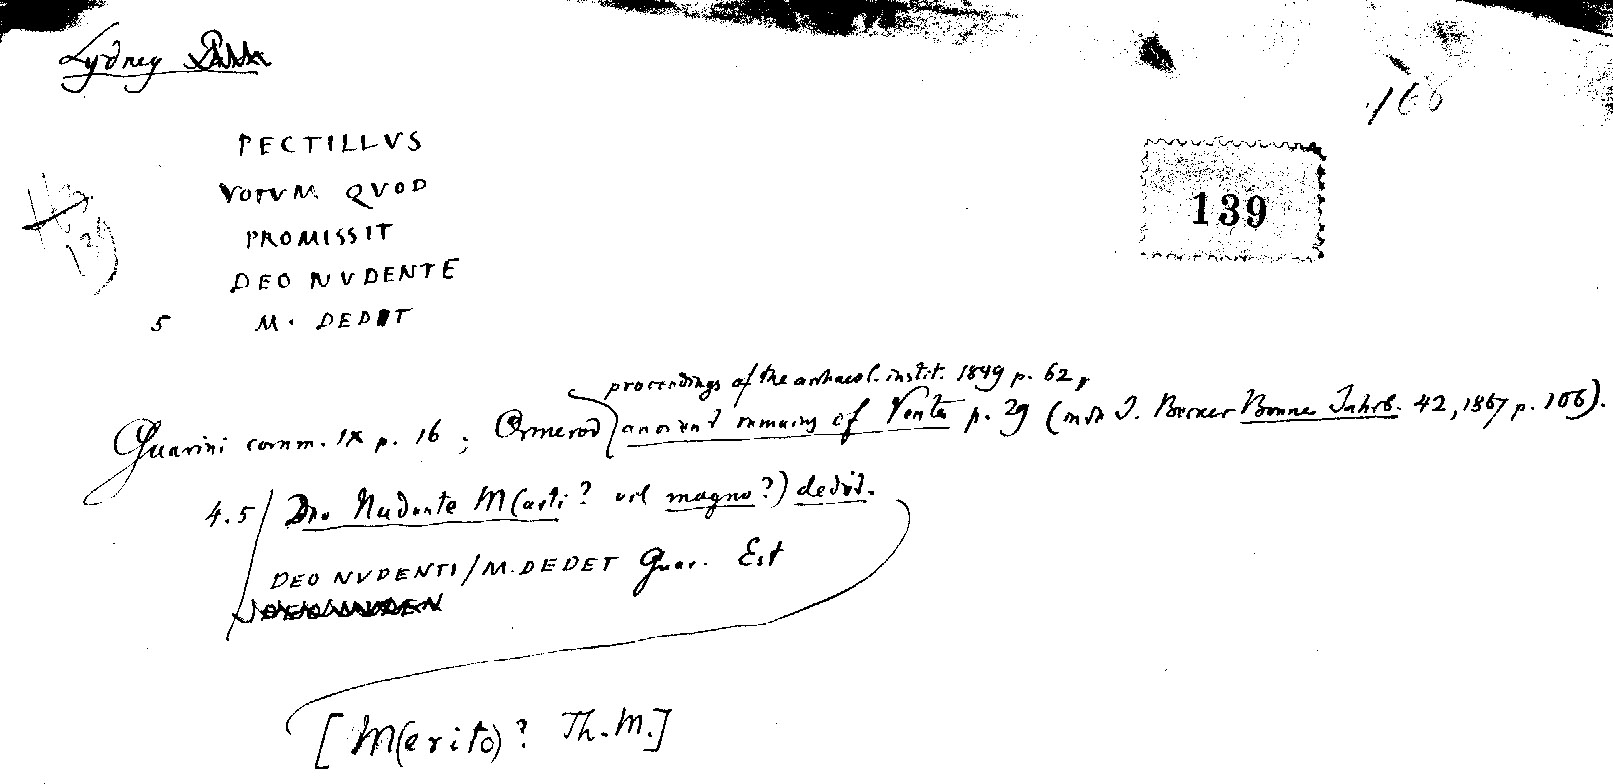 Lydney
166
PECTILLVS
VOTVM QVOD
PROMISSIT
DEO NVDENTE
5 M. DEDIT
139
H 3
139
proceedings of the archaeol. instit. 1849 p. 62,
Guarini comm. IX p. 16; Ormerod ancient remains of Venta p. 29 (inde J. Becker Bonner Jahrb. 42, 1867 p. 106).
4.5/ Deo Nudente M(arti? vel magno?) dedit.
DEO NVDENTI/M. DEDET Guar. Est
[M(erito)? Th. M.]